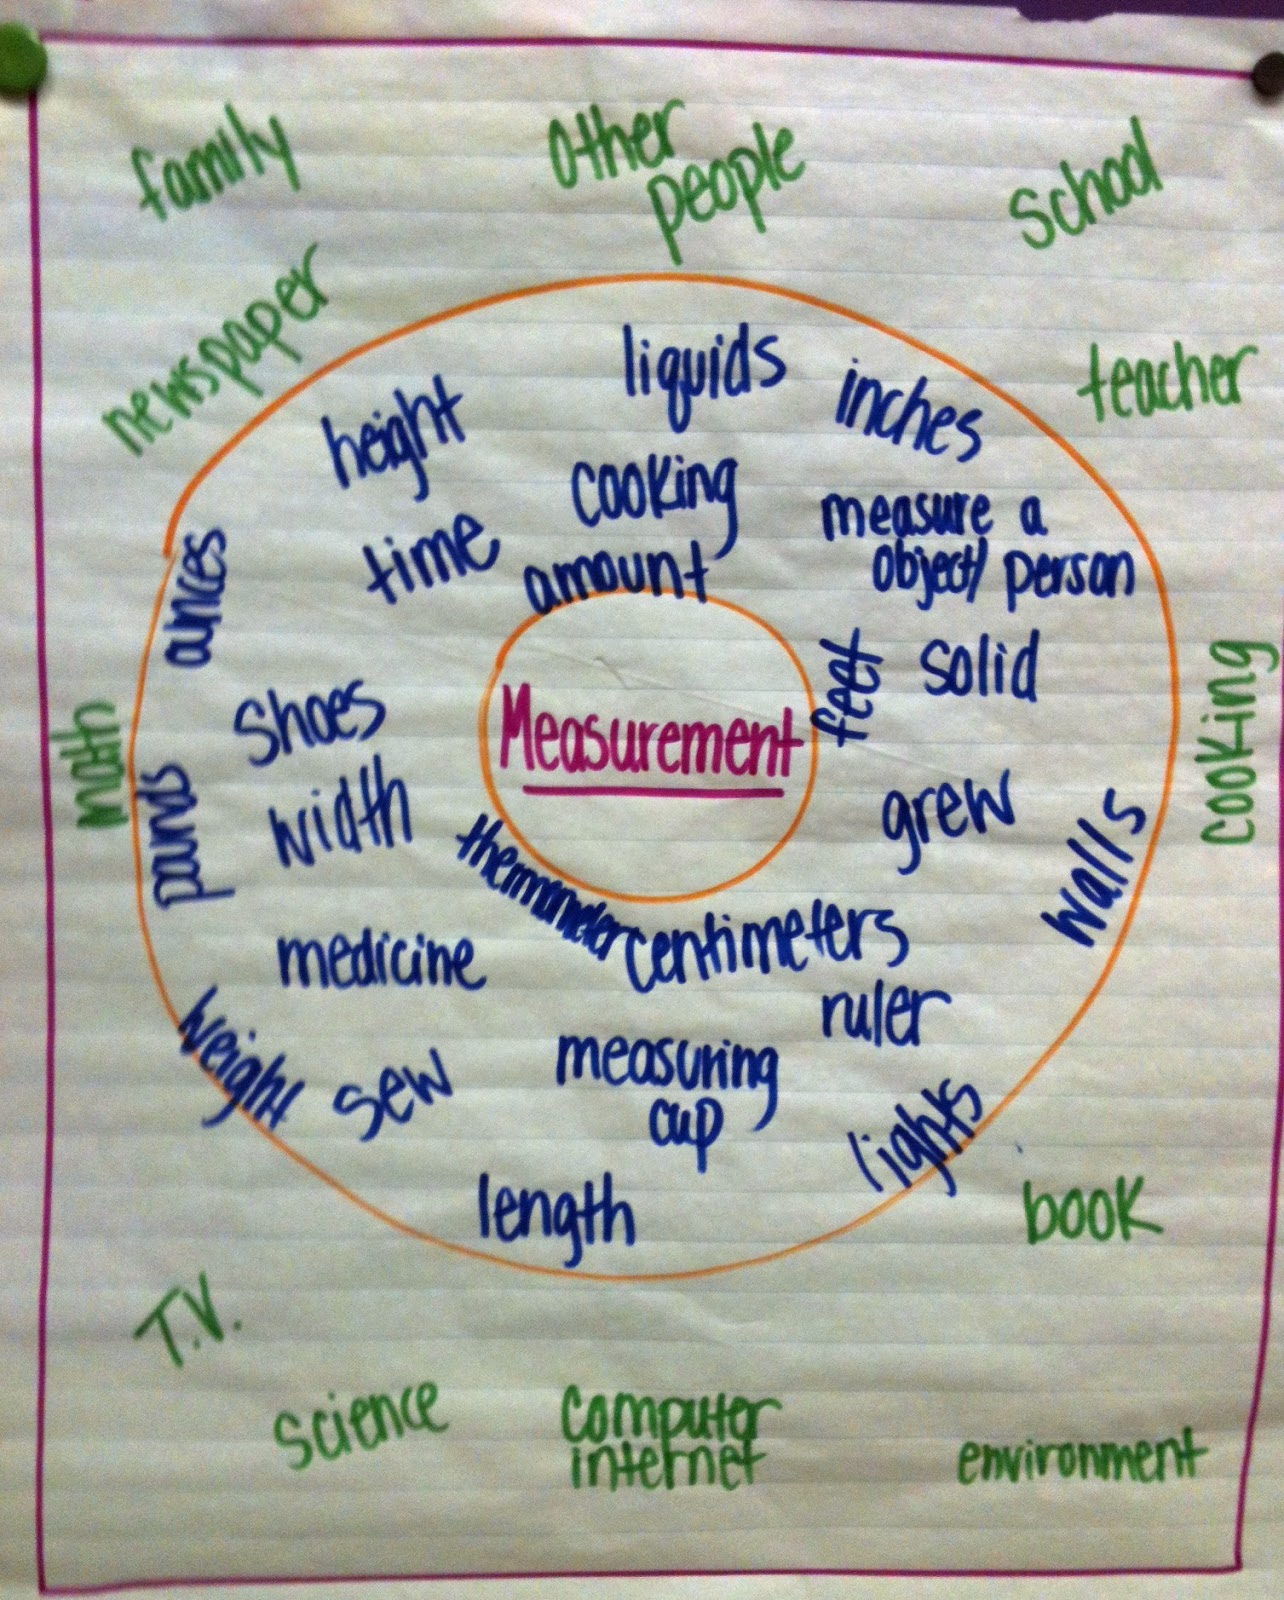 family
other
people
school
newspaper
teacher
liquids
inches
height
cooking
measure a
object/ person
time
amount
ounces
feet
solid
Shoes
Measurement
math
cooking
pounds
width
grew
walls
thermometer
centimeters
medicine
ruler
weight
sew
measuring
cup
lights
length
book
T.V.
science
computer
internet
environment